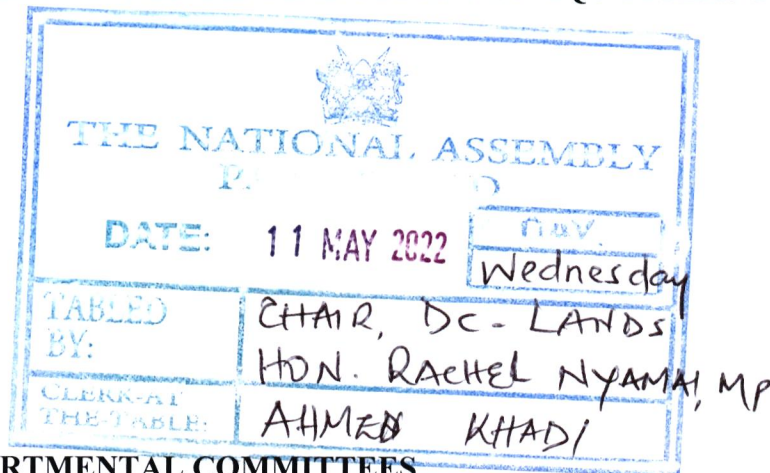 THE NATIONAL ASSEMBLY
DATE: 11 MAY 2022
DAY.
Wednesday
TABLED BY: CHAIR, DC - LANDS
HON. RACHEL NYAMAI, MP
CLERK-AT THE-TABLE: AHMED KHADI
RTMENTAL COMMITTEES